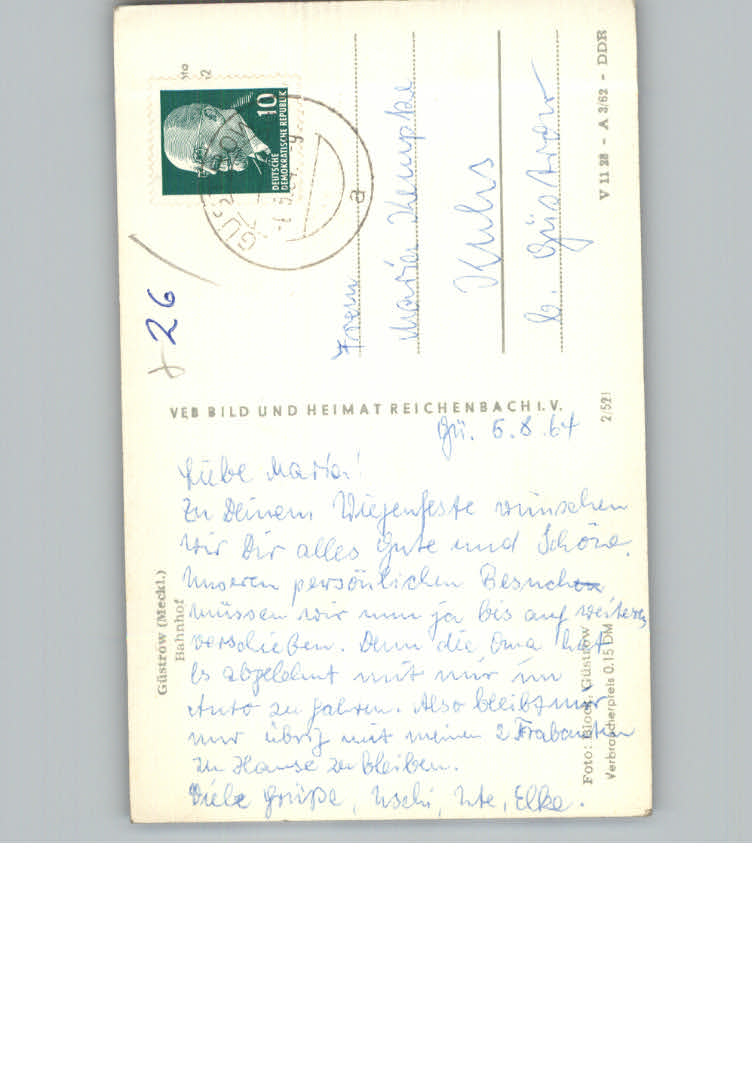 Güstrow (Meckl.)
Bahnhof
Gü. 5.8.64
Liebe Maria!
Zu Deinem Wiegenfeste wünschen
wir Dir alles Gute und Schöne.
Unseren persönlichen Besuch
müssen wir nun ja bis auf weiteres
verschieben. Denn die Oma hat
es abgelehnt mit mir im
Auto zu fahren. Also bleibt mir
nur übrig mit meinen 2 Trabanten
zu Hause zu bleiben.
Viele Grüße, Uschi, Ute, Elke.
Foto: Block, Güstrow
Verbraucherpreis 0,15 DM
VEB BILD UND HEIMAT REICHENBACH I. V.
2/521
+ 26
DEUTSCHE
DEMOKRATISCHE REPUBLIK
10
GÜSTROW
a
Frau
Maria Kempke
Kuhs
b. Güstrow
V 11 28 - A 3/62 - DDR